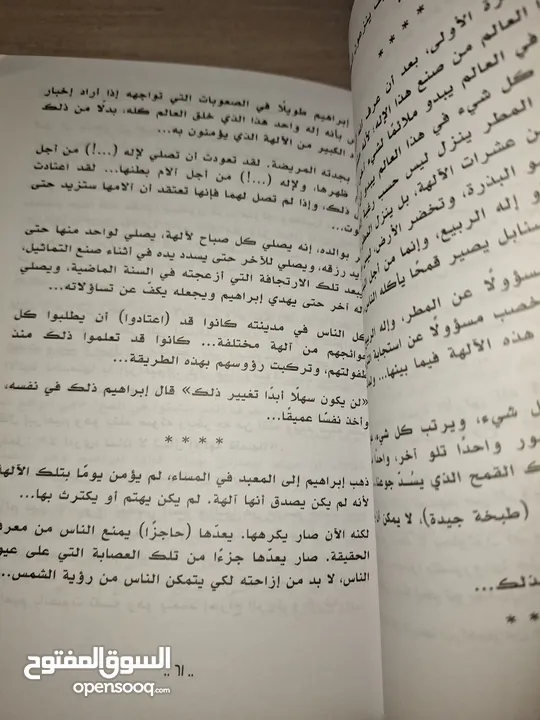 إبراهيم طويلًا في الصعوبات التي تواجهه إذا أراد إخبار
بأنه إله واحد هذا الذي خلق العالم كله، بدلًا من ذلك
الكبير من الآلهة الذي يؤمنون به...
بجدته المريضة. لقد تعودت أن تصلي لإله (...!) من أجل
ظهرها، ولإله (...!) من أجل آلام بطنها... لقد اعتادت
ذلك، وإذا لم تصل لهما فإنها تعتقد أن آلامها ستزيد حتى
بوالده، إنه يصلي كل صباح لآلهة، يصلي لواحد منها حتى
يد رزقه، ويصلي للآخر حتى يسدد يده في أثناء صنع التماثيل،
يبعد تلك الارتجافة التي أزعجته في السنة الماضية، ويصلي
له آخر حتى يهدي إبراهيم ويجعله يكفّ عن تساؤلاته...
كل الناس في مدينته كانوا قد (اعتادوا) أن يطلبوا كل
حوائجهم من آلهة مختلفة... كانوا قد تعلموا ذلك منذ
طفولتهم، وتركبت رؤوسهم بهذه الطريقة...
«لن يكون سهلًا أبدًا تغيير ذلك» قال إبراهيم ذلك في نفسه،
وأخذ نفسًا عميقًا...
* * * *
ذهب إبراهيم إلى المعبد في المساء، لم يؤمن يومًا بتلك الآلهة
لأنه لم يكن يصدق أنها آلهة. لم يكن يهتم أو يكترث بها...
لكنه الآن صار يكرهها. يعدّها (حاجزًا) يمنع الناس من معرفة
الحقيقة. صار يعدّها جزءًا من تلك العصابة التي على عيون
الناس، لا بد من إزاحته لكي يتمكن الناس من رؤية الشمس...
.. ٦١ ..
* * * *
رة الأولى، بعد أن عرف
ا العالم من صنع هذا الإله،
في العالم يبدو ملائمًا
كل شيء في هذا العالم
المطر ينزل ليس حسب
ن عشرات الآلهة، بل ينزل
و البذرة، وتخضر الأرض
و إله الربيع، وإنما من أجل
سنابل يصير قمحًا يأكله
مسؤولًا عن المطر، وإله
خصب مسؤولًا عن استجابة
هذه الآلهة فيما بينها...
ل شيء، ويرتب كل
ور واحدًا تلو آخر،
ك القمح الذي يسد
(طبخة جيدة)، لا يمكن
لذلك...
* *
السوق المفتوح
opensooq.com